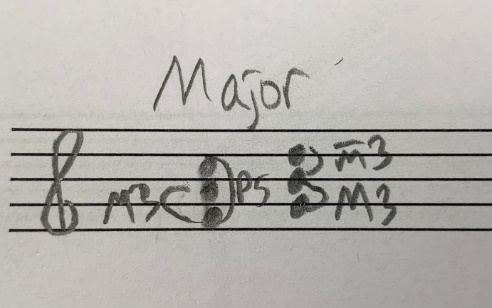 Major
M3
P5
m̄3
M3